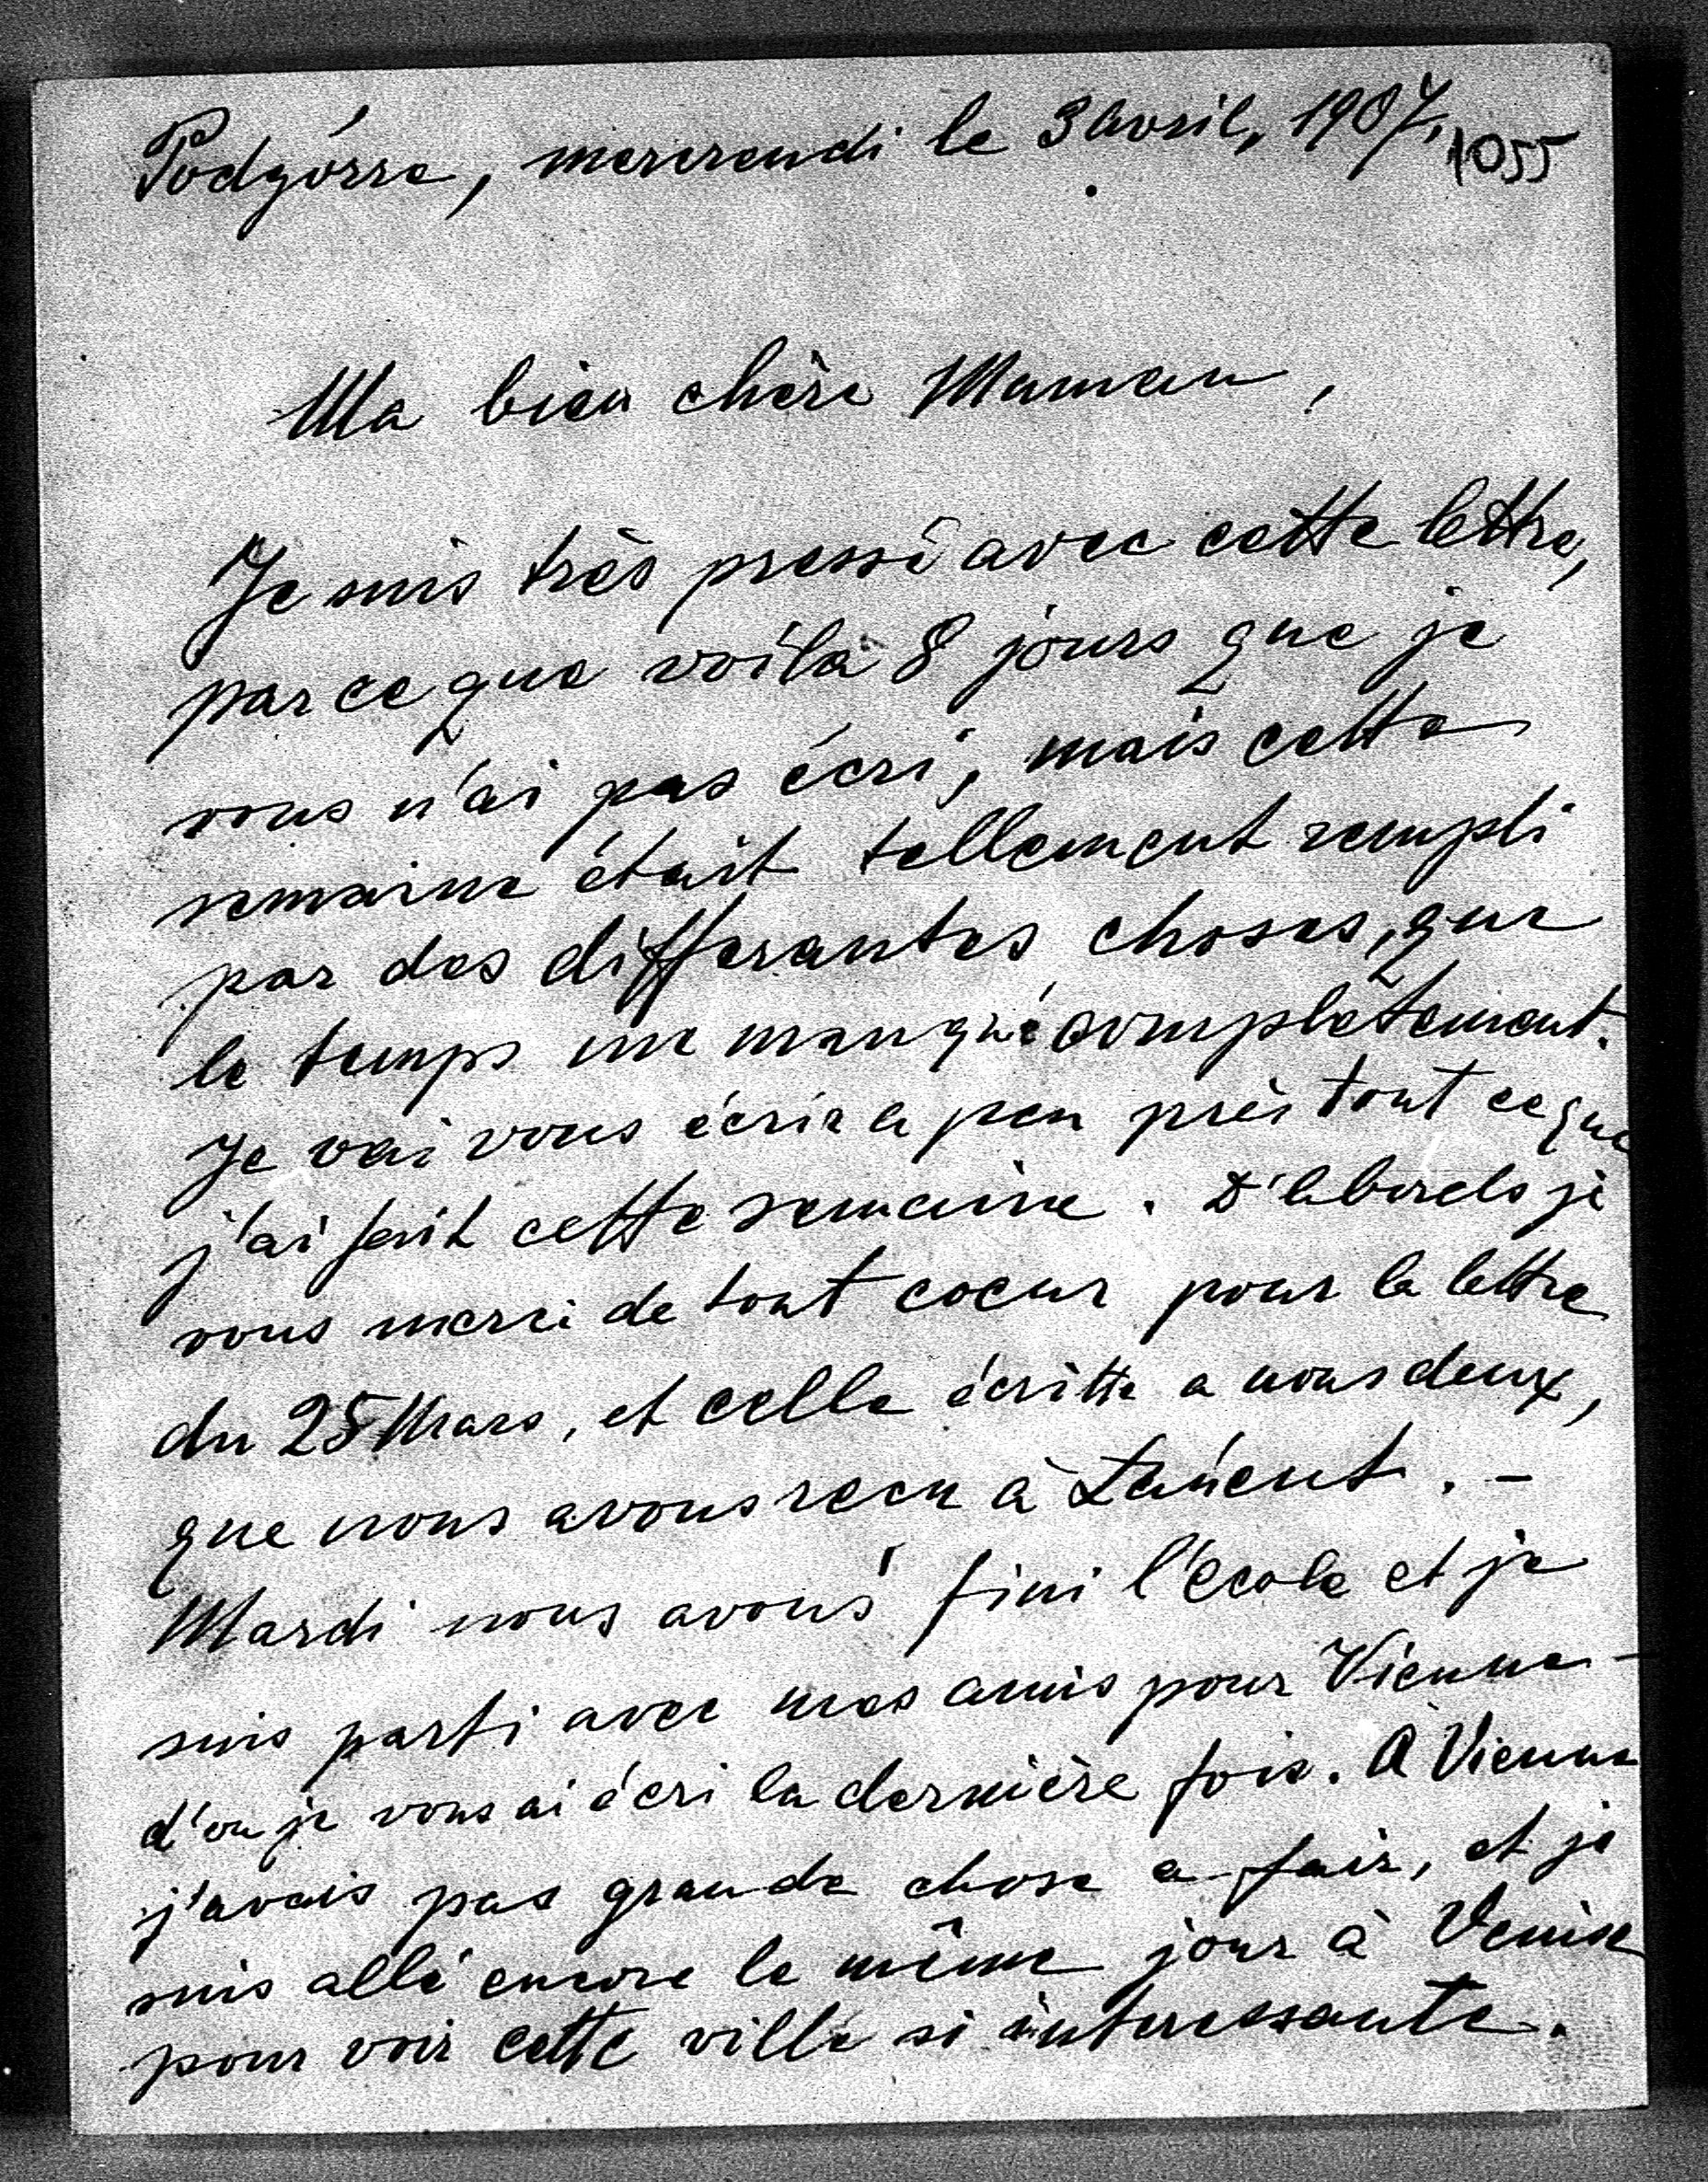 Podgórze, mercrendi le 3 avril, 1907,
1055
Ma bien chère Maman,
Je suis très pressé avec cette lettre,
parceque voilà 8 jours que je
vous n'ai pas écri, mais cette
semaine était tellement rempli
par des differantes choses, que
le temps me manqué complètement.
Je vai vous écrir a peu près tout ceque
j'ai fait cette semaine. D'abords je
vous merci de tout coeur pour la lettre
du 25 Mars, et celle écritte a nous deux,
que nous avons recu à Łańcut. -
Mardi nous avons fini l'école et je
suis parti avec mes amis pour Vienne -
d'ou je vous ai écri la dernière fois. À Vienne
j'avais pas grande chose a fair, et je
suis allé encore le même jour à Venise
pour voir cette ville si interessante.